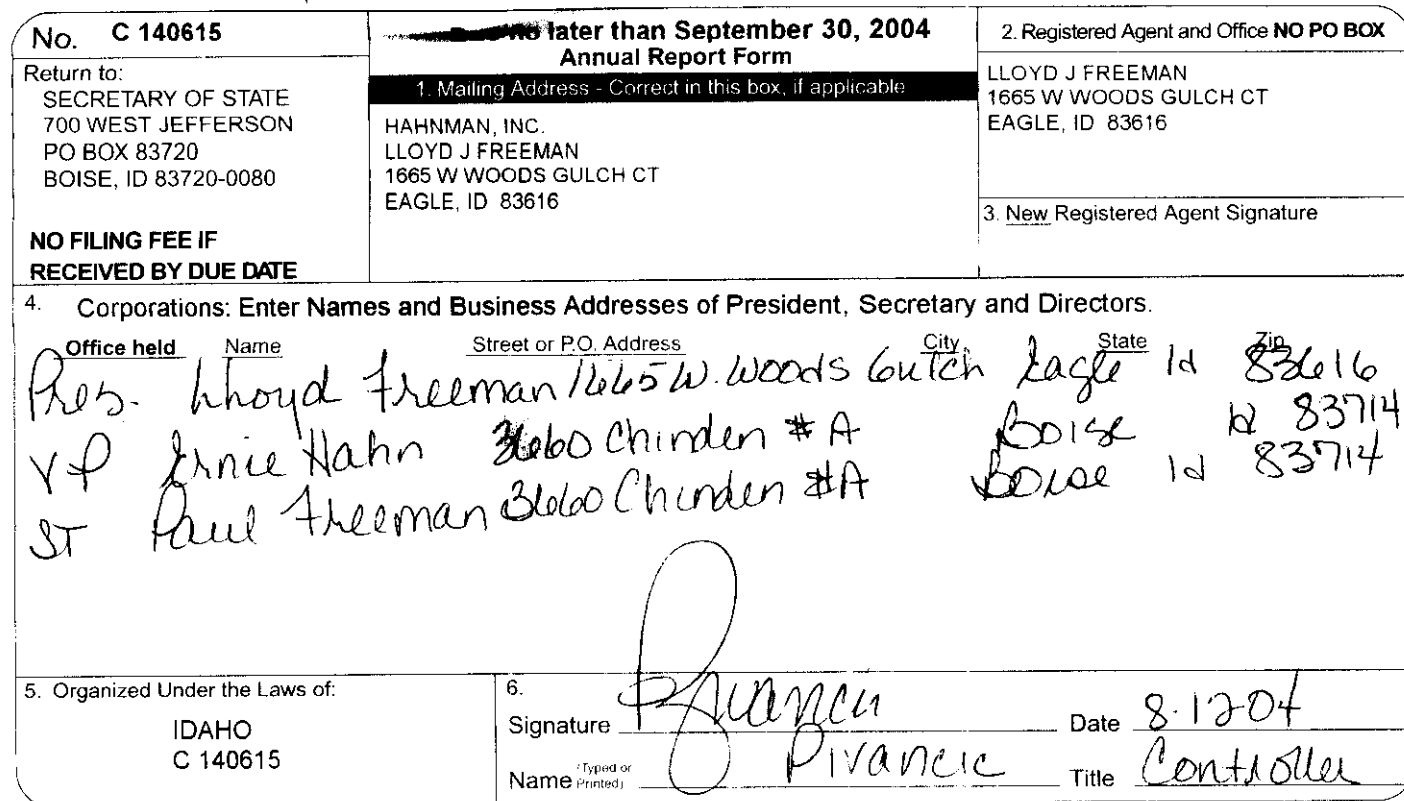 No. C 140615
Return to:
SECRETARY OF STATE
700 WEST JEFFERSON
PO BOX 83720
BOISE, ID 83720-0080
NO FILING FEE IF
RECEIVED BY DUE DATE
no later than September 30, 2004
Annual Report Form
1. Mailing Address - Correct in this box, if applicable
HAHNMAN, INC.
LLOYD J FREEMAN
1665 W WOODS GULCH CT
EAGLE, ID 83616
2. Registered Agent and Office NO PO BOX
LLOYD J FREEMAN
1665 W WOODS GULCH CT
EAGLE, ID 83616
3. New Registered Agent Signature
4. Corporations: Enter Names and Business Addresses of President, Secretary and Directors.
Office held Name Street or P.O. Address City State Zip
Pres. Lloyd Freeman 1665 W. Woods Gulch Eagle Id 83616
VP Ernie Hahn 3660 Chinden #A Boise Id 83714
ST Paul Freeman 3660 Chinden #A Boise Id 83714
5. Organized Under the Laws of:
IDAHO
C 140615
6.
Signature Date 8-12-04
Name (Typed or Printed) Pivancic Title Controller